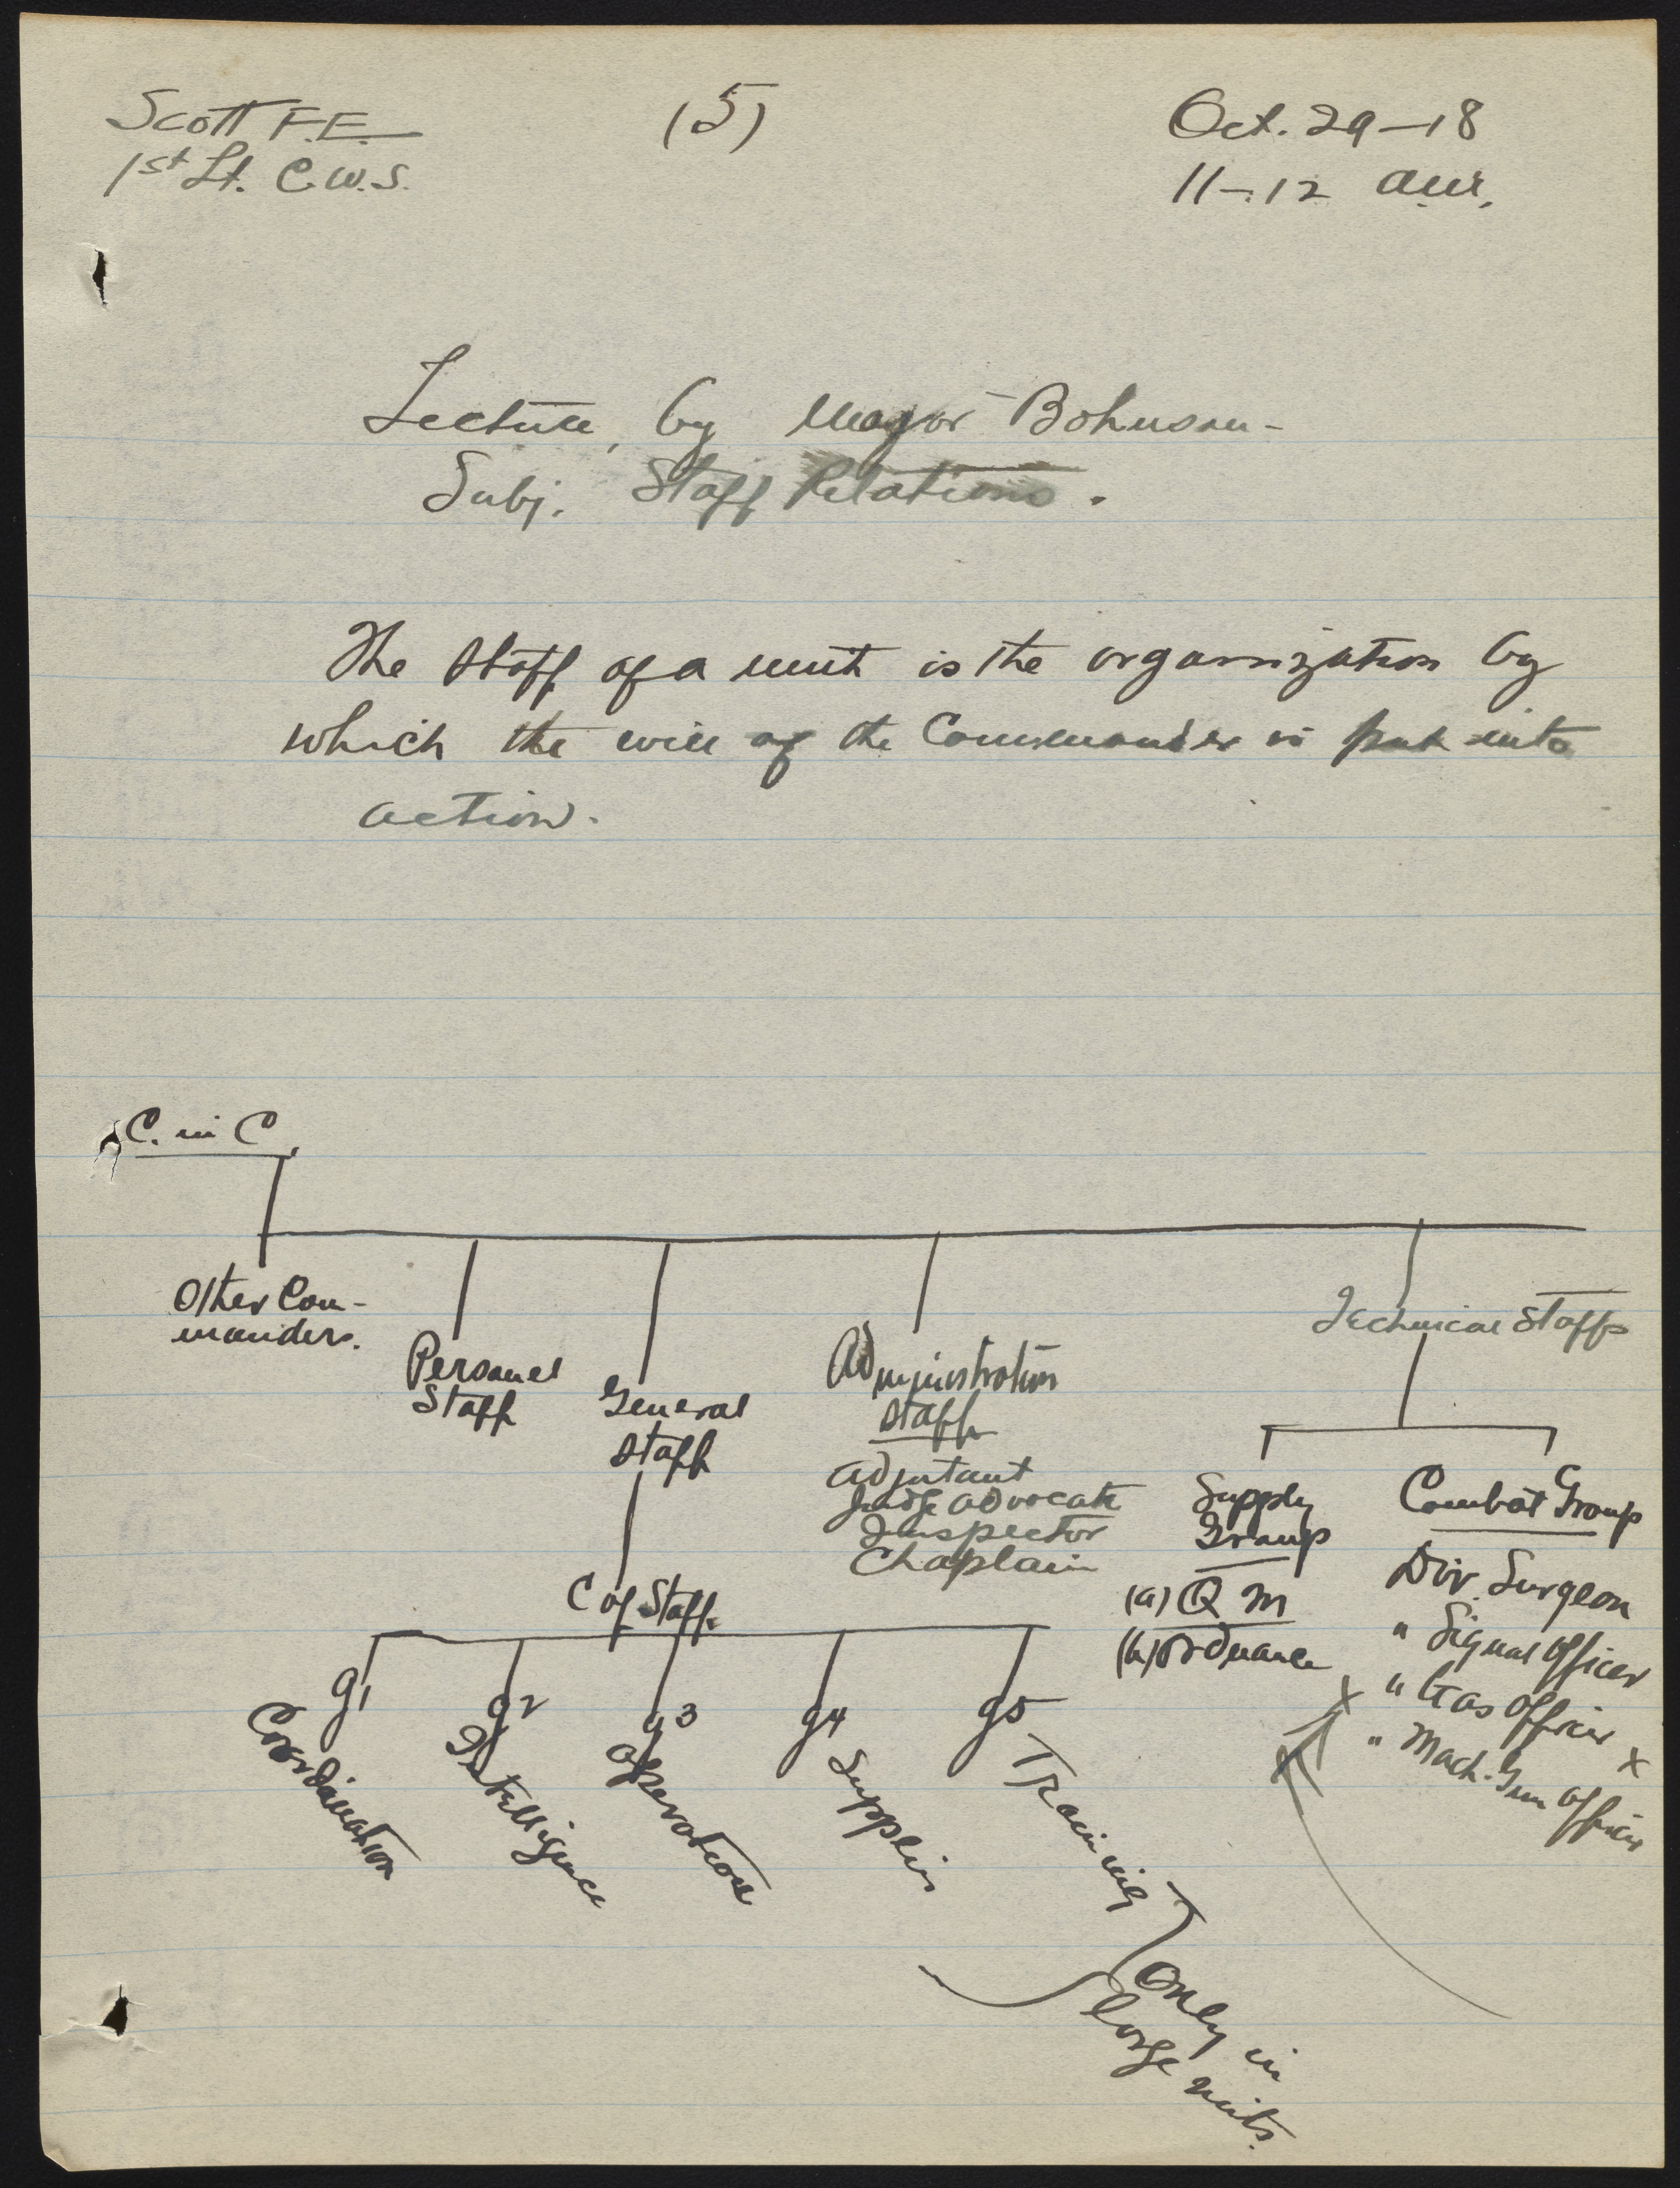 Scott F.E.
(5)
Oct. 29-18
1st Lt. C.W.S.
11-12 am.
Lecture, by Major Bohnson-
Subj. Staff Relations.
The staff of a unit is the organization by
which the will of the Commander is put into
action.
C. in C.
Other Com-
manders.
Personel
Staff
General
Staff
Administration
Staff
Adjutant
Judge Advocate
Inspector
Chaplain
Technical Staffs
Supply
Group
(a) Q M
(b) Ordnance
Combat Group
Div. Surgeon
" Signal Officer
x " Gas Officer x
" Mach. Gun Officer
C of Staff.
G1
Coordination
G2
Intelligence
G3
Operations
G4
Supplies
G5
Training
Only in
large units.